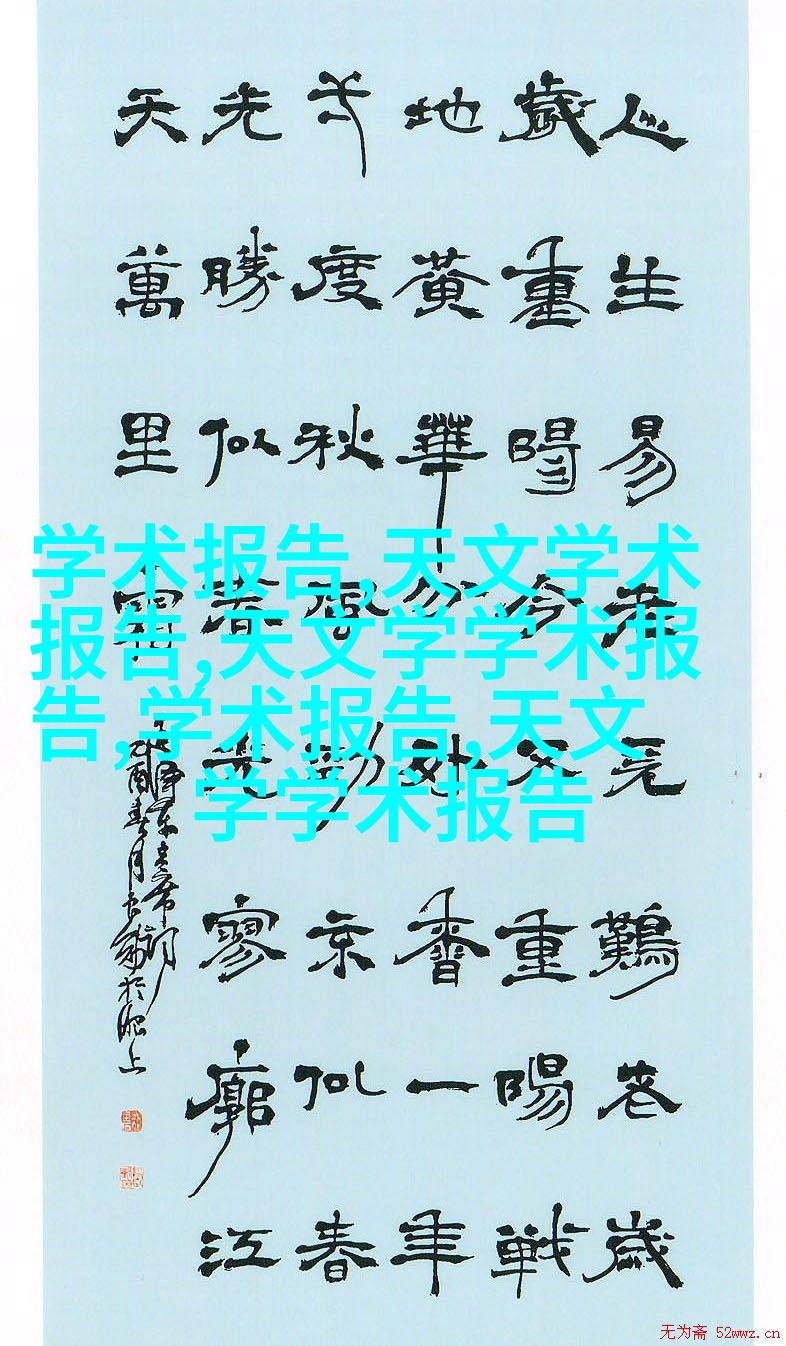 人生易老天難老歲
歲重陽今又重陽戰
地黃華分外香一年
一度秋風勁不似春
光勝似春光寥廓江
天萬里霜
毛澤東主席詞
乙酉春月 於肥上
学术报告,天文学术
报告,天文学学术报
告,学术报告,天文
学学术报告
无为斋 52wwz.cn